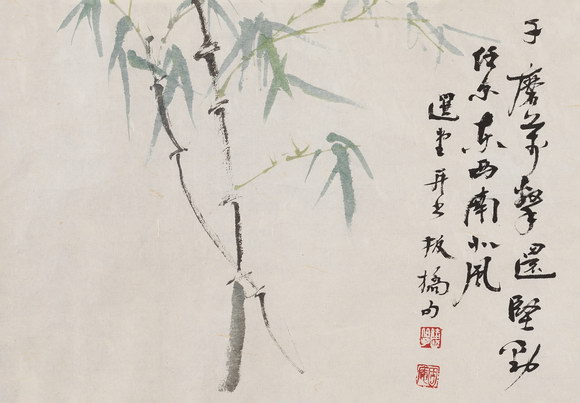 千磨萬擊還堅勁
任尔東西南北風
選堂并書板橋句